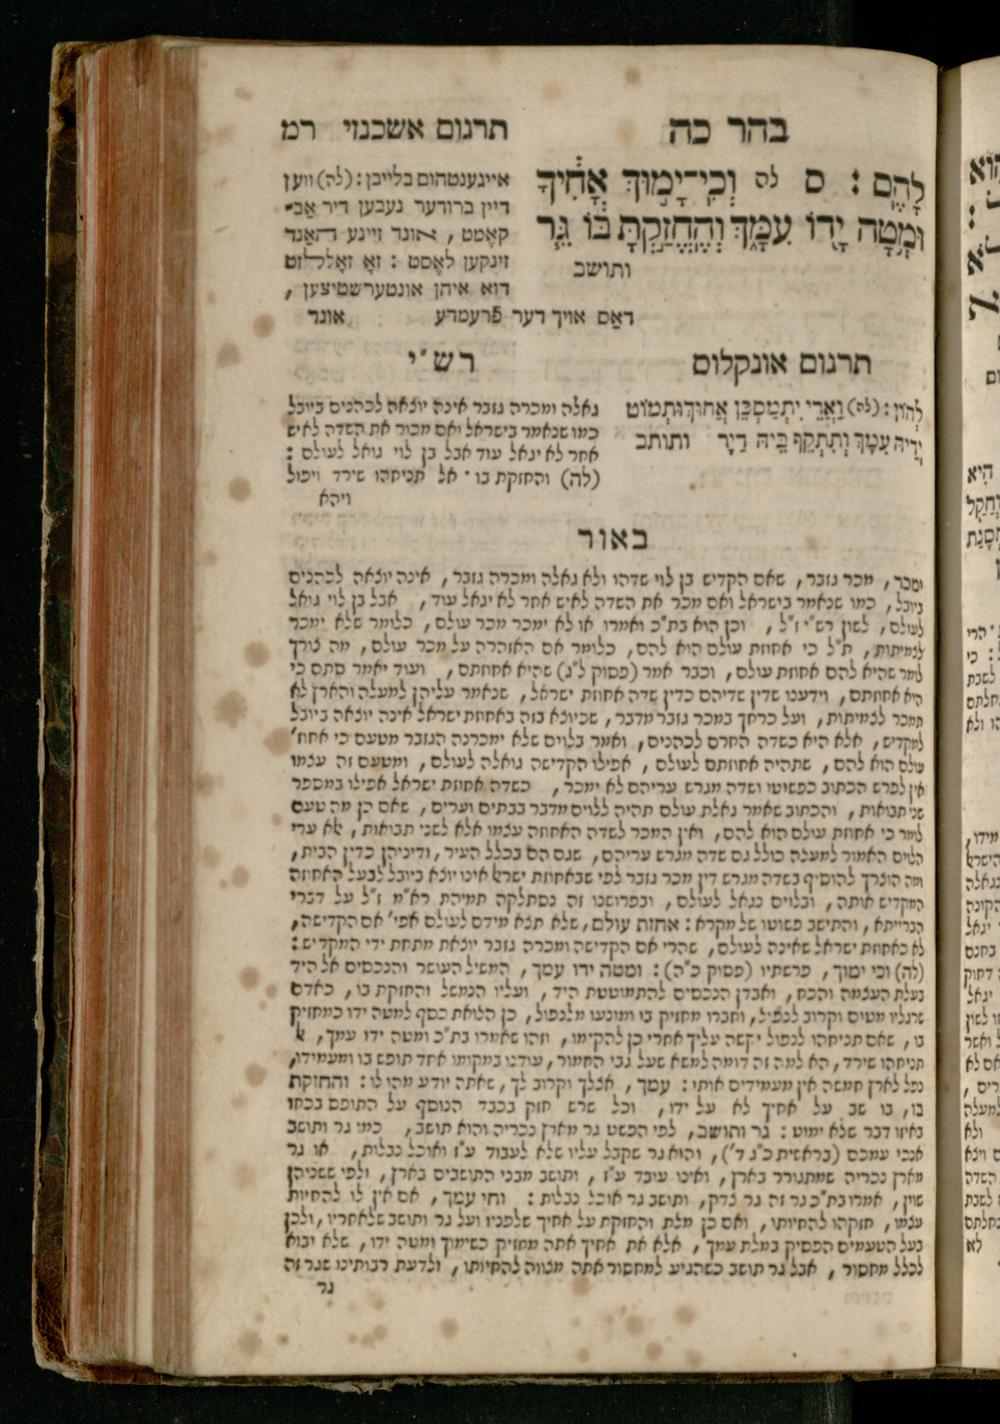 בהר כה
תרגום אשכנזי רמ
לָהֶֽם : ס לה וְכִֽי־יָמ֣וּךְ אָחִ֔יךָ
וּמָ֥טָה יָד֖וֹ עִמָּ֑ךְ וְהֶֽחֱזַ֣קְתָּ בּ֔וֹ גֵּ֧ר
ותושב
אייגענטהום בלייבן : (לה) ווען
דיין ברודער נעבען דיר אב־
קאָמט , אונד זיינע האַנד
זינקען לאָסט : זאָ זאָללסט
דוא איהן אונטערשטיצען ,
דאַס אויך דער פֿרעמדע אונד
תרגום אונקלוס
לְהוֹן : (לה) וַאֲרֵי יִתְמַסְכֵּן אֲחוּךְ וּתְמוֹט
יְדֵיהּ עִמָּךְ וְתִתְקֵף בֵּיהּ דַּיָר ותותב
רש״י
גאלה ומכרה גזבר אינה יוצאה לכהנים ביובל
כמו שנאמר בישראל ואם מכור את השדה לאיש
אחר לא יגאל עוד אבל בן לוי גואל לעולם :
(לה) והחזקת בו · אל תניחהו שירד ויפול
ויהא
באור
ומכר , מכר גזבר , שאם הקדיש בן לוי שדהו ולא גאלה ומכרה גזבר , אינה יוצאה לכהנים
ביובל , כמו שנאמר בישראל ואם מכר את השדה לאיש אחר לא יגאל עוד , אבל בן לוי גואל
לעולם , לשון רש״י ז״ל , וכן הוא בת״כ ואמרו או לא ימכר מכר עולם , כלומר שלא ימכר
לצמיתות , ת״ל כי אחוזת עולם הוא להם , כלומר אם האזהרה על מכר עולם , מה צורך
לומר שהיא להם אחוזת עולם , וכבר אמר (פסוק ל״ג) שהיא אחוזתם , ועוד יאמר סתם כי
היא אחוזתם , וידענו שדין שדיהם כדין שדה אחוזת ישראל , שנאמר עליהן למעלה והארץ לא
תמכר לצמיתות , ועל כרחך במכר גזבר מדבר , שכיוצא בזה באחוזת ישראל אינה יוצאה ביובל
למקדיש , אלא היא כשדה החרם לכהנים , ואמר בלוים שלא ימכרנה הגזבר מטעם כי אחוז׳
עולם הוא להם , שתהיה אחוזתם לעולם , אפילו הקדישה גואלה לעולם , ומטעם זה עצמו
אין לפרש הכתוב כפשוטו ושדה מגרש עריהם לא ימכר , כשדה אחוזת ישראל אפילו במספר
שני תבואות , והכתוב שאמר גאלת עולם תהיה ללוים מדבר בבתים וערים , שאם כן מה טעם
לומר כי אחוזת עולם הוא להם , ואין המכר לשדה האחוזה עצמו אלא לשני תבואות , אלא ערי
הלוים האמור למעלה כולל גם שדה מגרש עריהם , שגם הם בכלל העיר , ודיניהן כדין הבית ,
ומה הוצרך להוסיף בשדה מגרש דין מכר גזבר לפי שבאחוזת ישראל אינו יוצא ביובל לבעל האחוזה
המקדיש אותה , ובלוים נגאל לעולם , ובפרושנו זה נסתלקה תמיהת רא״מ ז״ל על דברי
הברייתא , והתישב פשוטו של מקרא : אחזת עולם , שלא תצא מידם לעולם אפי׳ אם הקדישה ,
לא כאחוזת ישראל שאינה לעולם , שהרי אם הקדישה ומכרה גזבר יוצאת מתחת ידי המקדיש :
(לה) וכי ימוך , פרשתיו (פסוק כ״ה) : ומטה ידו עמך , המשיל העושר והנכסים אל היד
בעלת העצמה והכח , ואבדן הנכסים להתמוטטת היד , ועליו הנמשל והחזקת בו , כאדם
שרגליו מטים וקרוב לנפול , וחברו מחזיק בו ומונעו מלנפול , כן הלואת כסף למטה ידו כמחזיק
בו , שאם תניחהו לנפול יקשה עליך אחרי כן להקימו , וזהו שאמרו בת״כ ומטה ידו עמך , אל
תניחהו שירד , הא למה זה דומה למשא שעל גבי החמור , עודנו במקומו אחד תופש בו ומעמידו ,
נפל לארץ חמשה אין מעמידים אותו : עמך , אצלך וקרוב לך , שאתה יודע מהו לו : והחזקת
בו , בו שב על אחיך לא על ידו , וכל שרש חזק בכבד הנוסף על התופס בכחו
באיזו דבר שלא ימוט : גר ותושב , לפי הפשט גר מארץ נכריה והוא תושב , כמו גר ותושב
אנכי עמכם (בראשית כ״ג ד׳) , והוא גר שקבל עליו שלא לעבוד ע״ז ואוכל נבלות , או גר
מארץ נכריה שמתגורר בארץ , ואינו עובד ע״ז , ותושב מבני התושבים בארץ , ולפי ששניהן
שוין , אמרו בת״כ גר זה גר צדק , ותושב גר אוכל נבלות : וחי עמך , אם אין לו להחיות
עצמו , חזקהו להחיותו , ואם כן מלת והחזקת על אחיך שלפניו ועל גר ותושב שלאחריו , ולכן
בעל הטעמים הפסיק במלת עמך , אלא את אחיך אתה מחזיק כשימוך ומטה ידו , שלא יבוא
לכלל מחסור , אבל גר תושב כשהגיע למחסור אתה מצווה להחיותו , ולדעת רבותינו שגר זה
גר